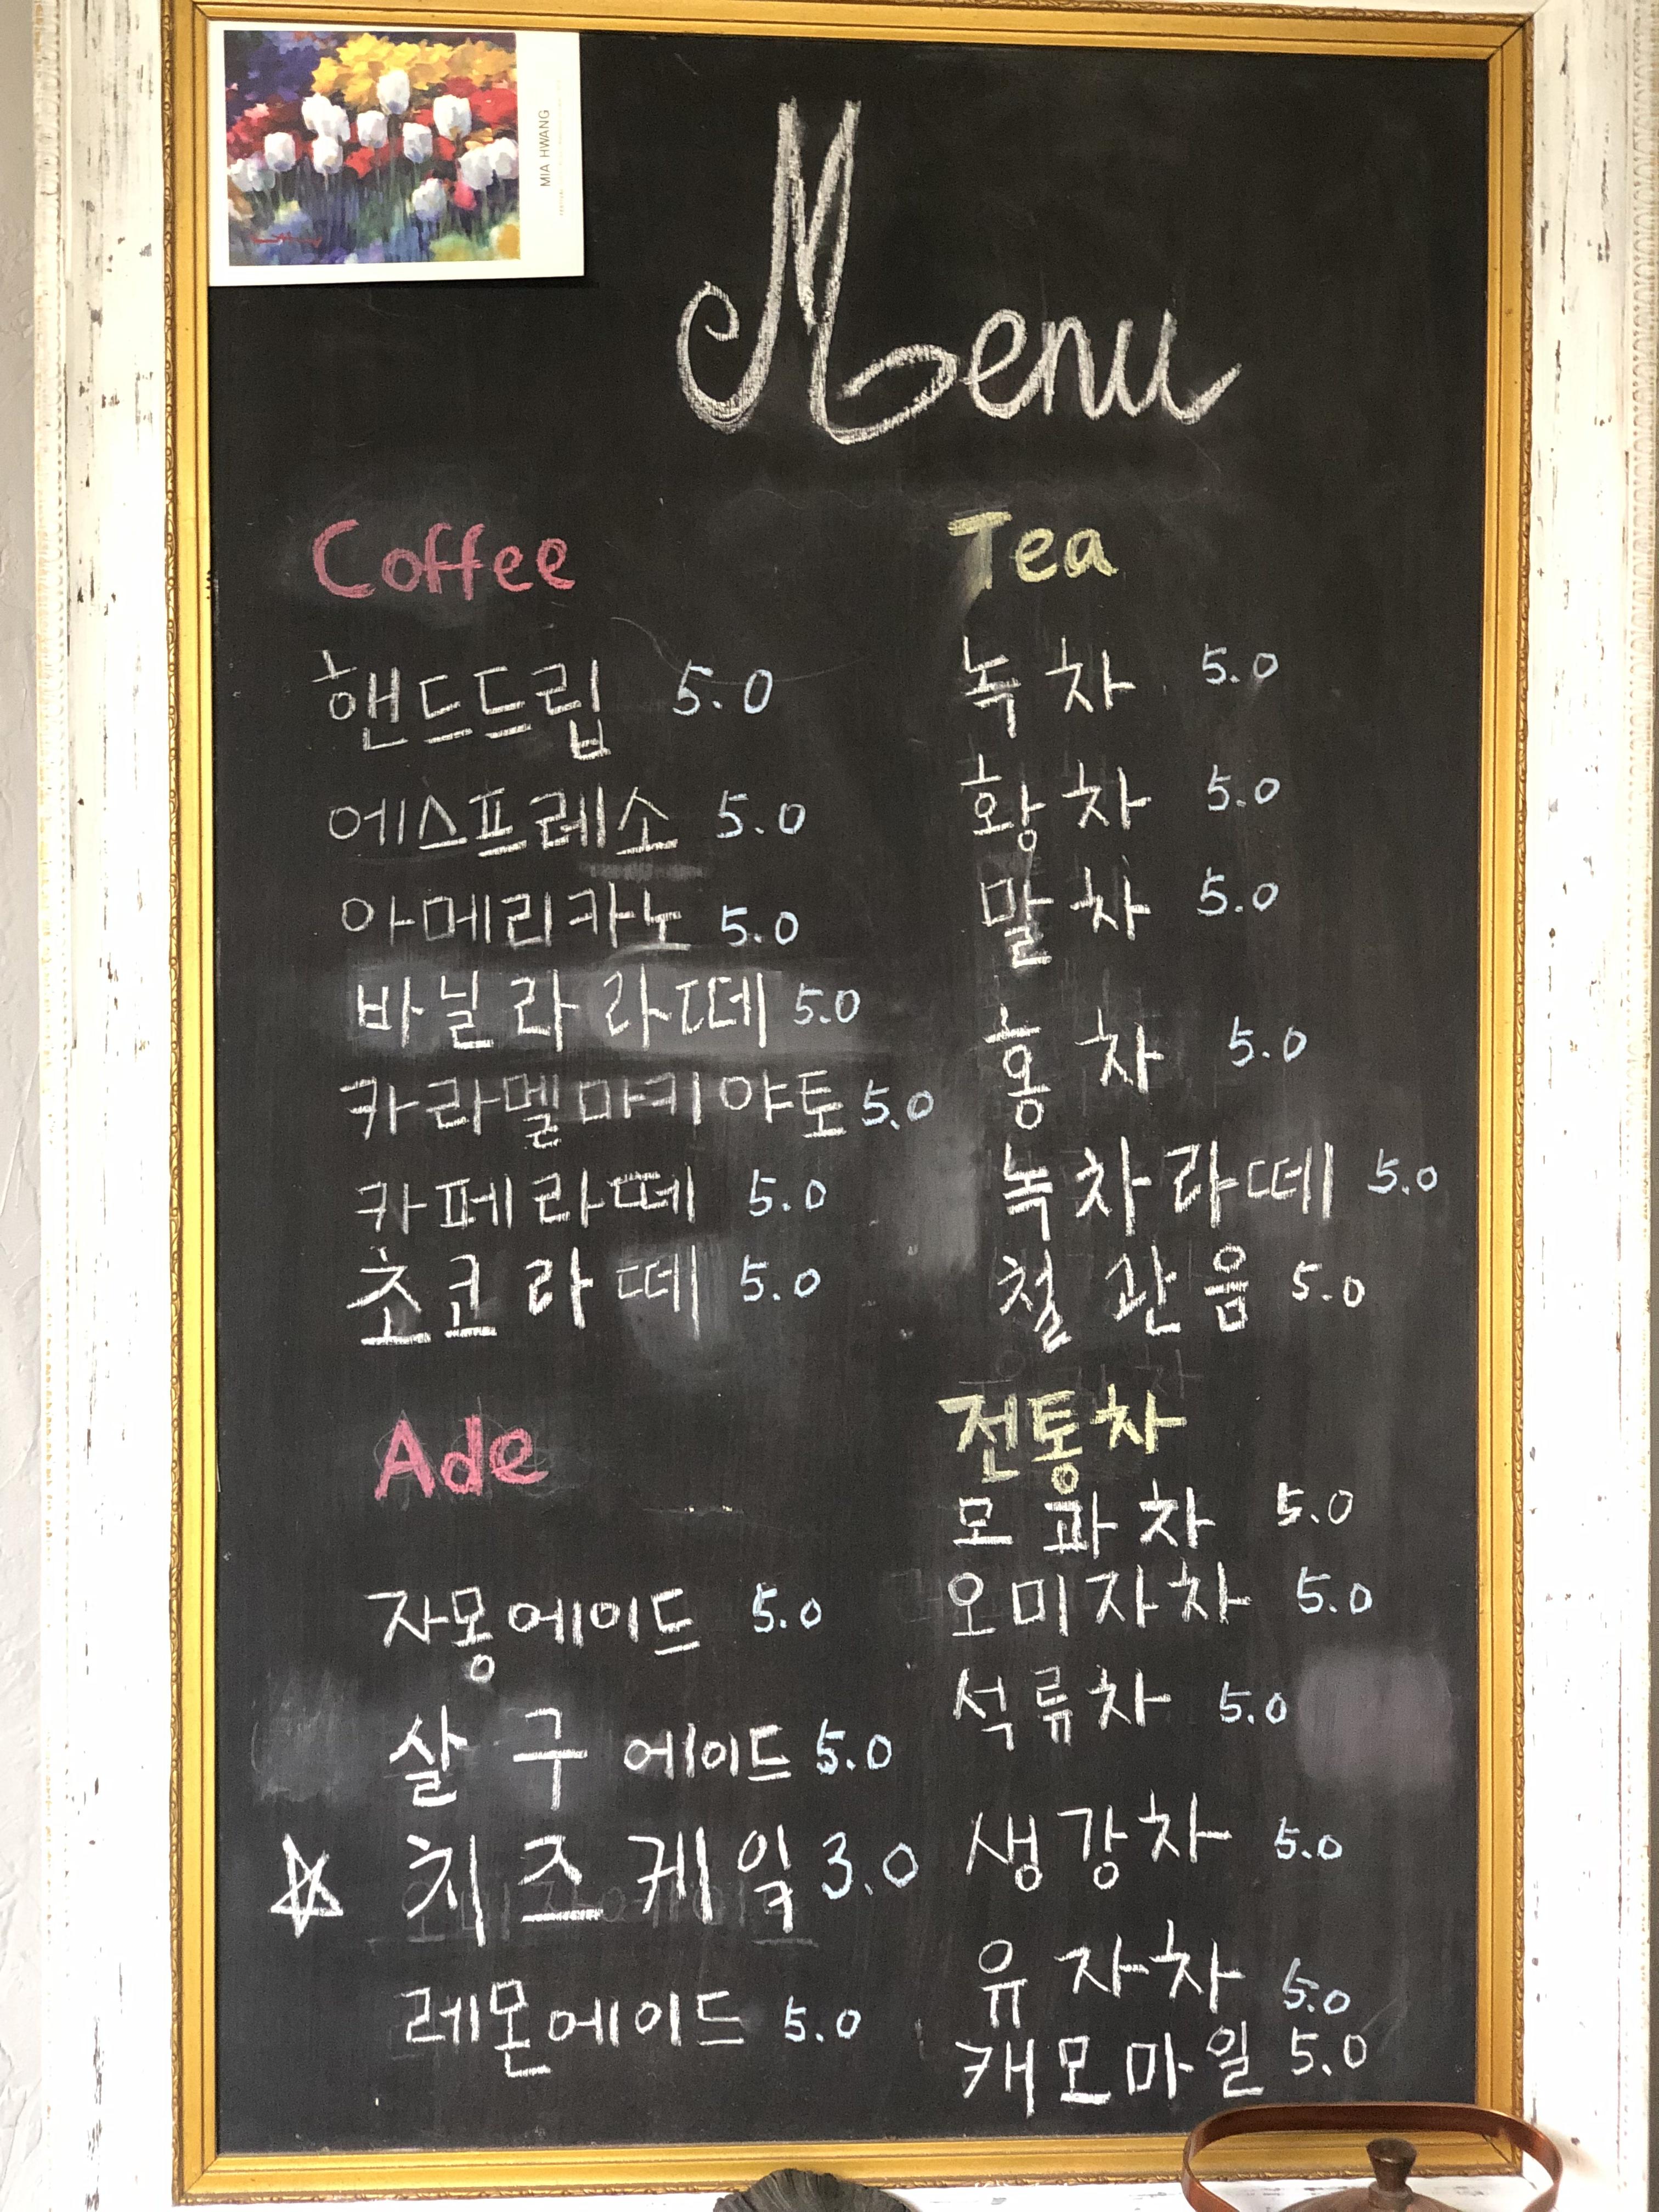 MIA HWANG
Menu
Coffee
핸드드립 5.0
에스프레소 5.0
아메리카노 5.0
바닐라 라떼 5.0
카라멜마키야토 5.0
카페라떼 5.0
초코라떼 5.0
Ade
자몽에이드 5.0
살구에이드 5.0
☆ 치즈케잌 3.0
레몬에이드 5.0
Tea
녹차 5.0
황차 5.0
말차 5.0
홍차 5.0
녹차라떼 5.0
철관음 5.0
전통차
모과차 5.0
오미자차 5.0
석류차 5.0
생강차 5.0
유자차 5.0
캐모마일 5.0